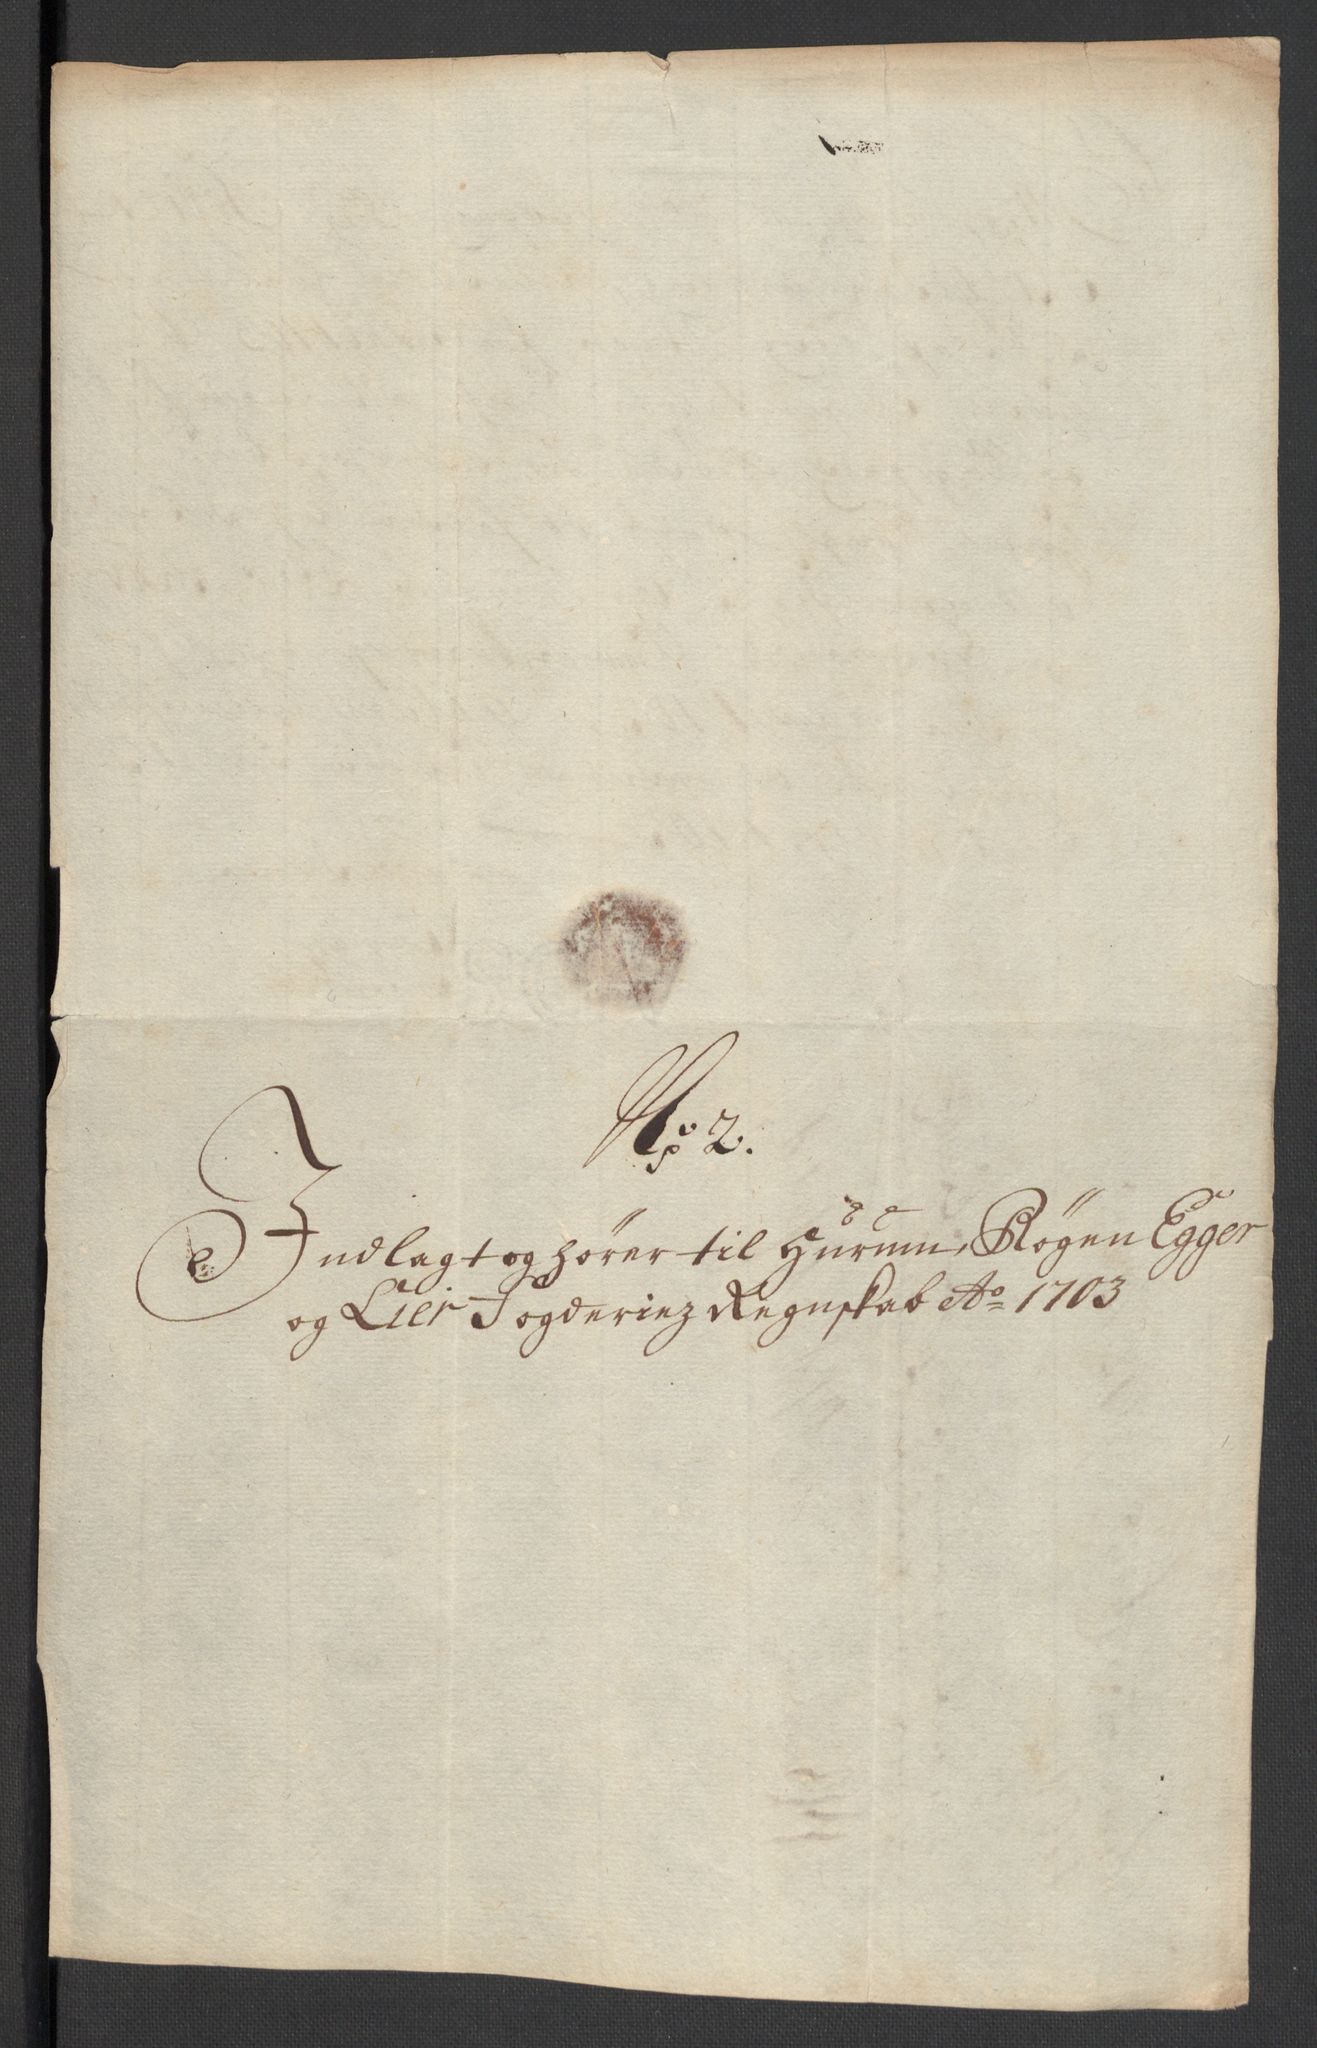 No 2.
Indlagt og hører til Hurum, Røgen Egger
og Lier Fogderiez Regnskab Ao 1703